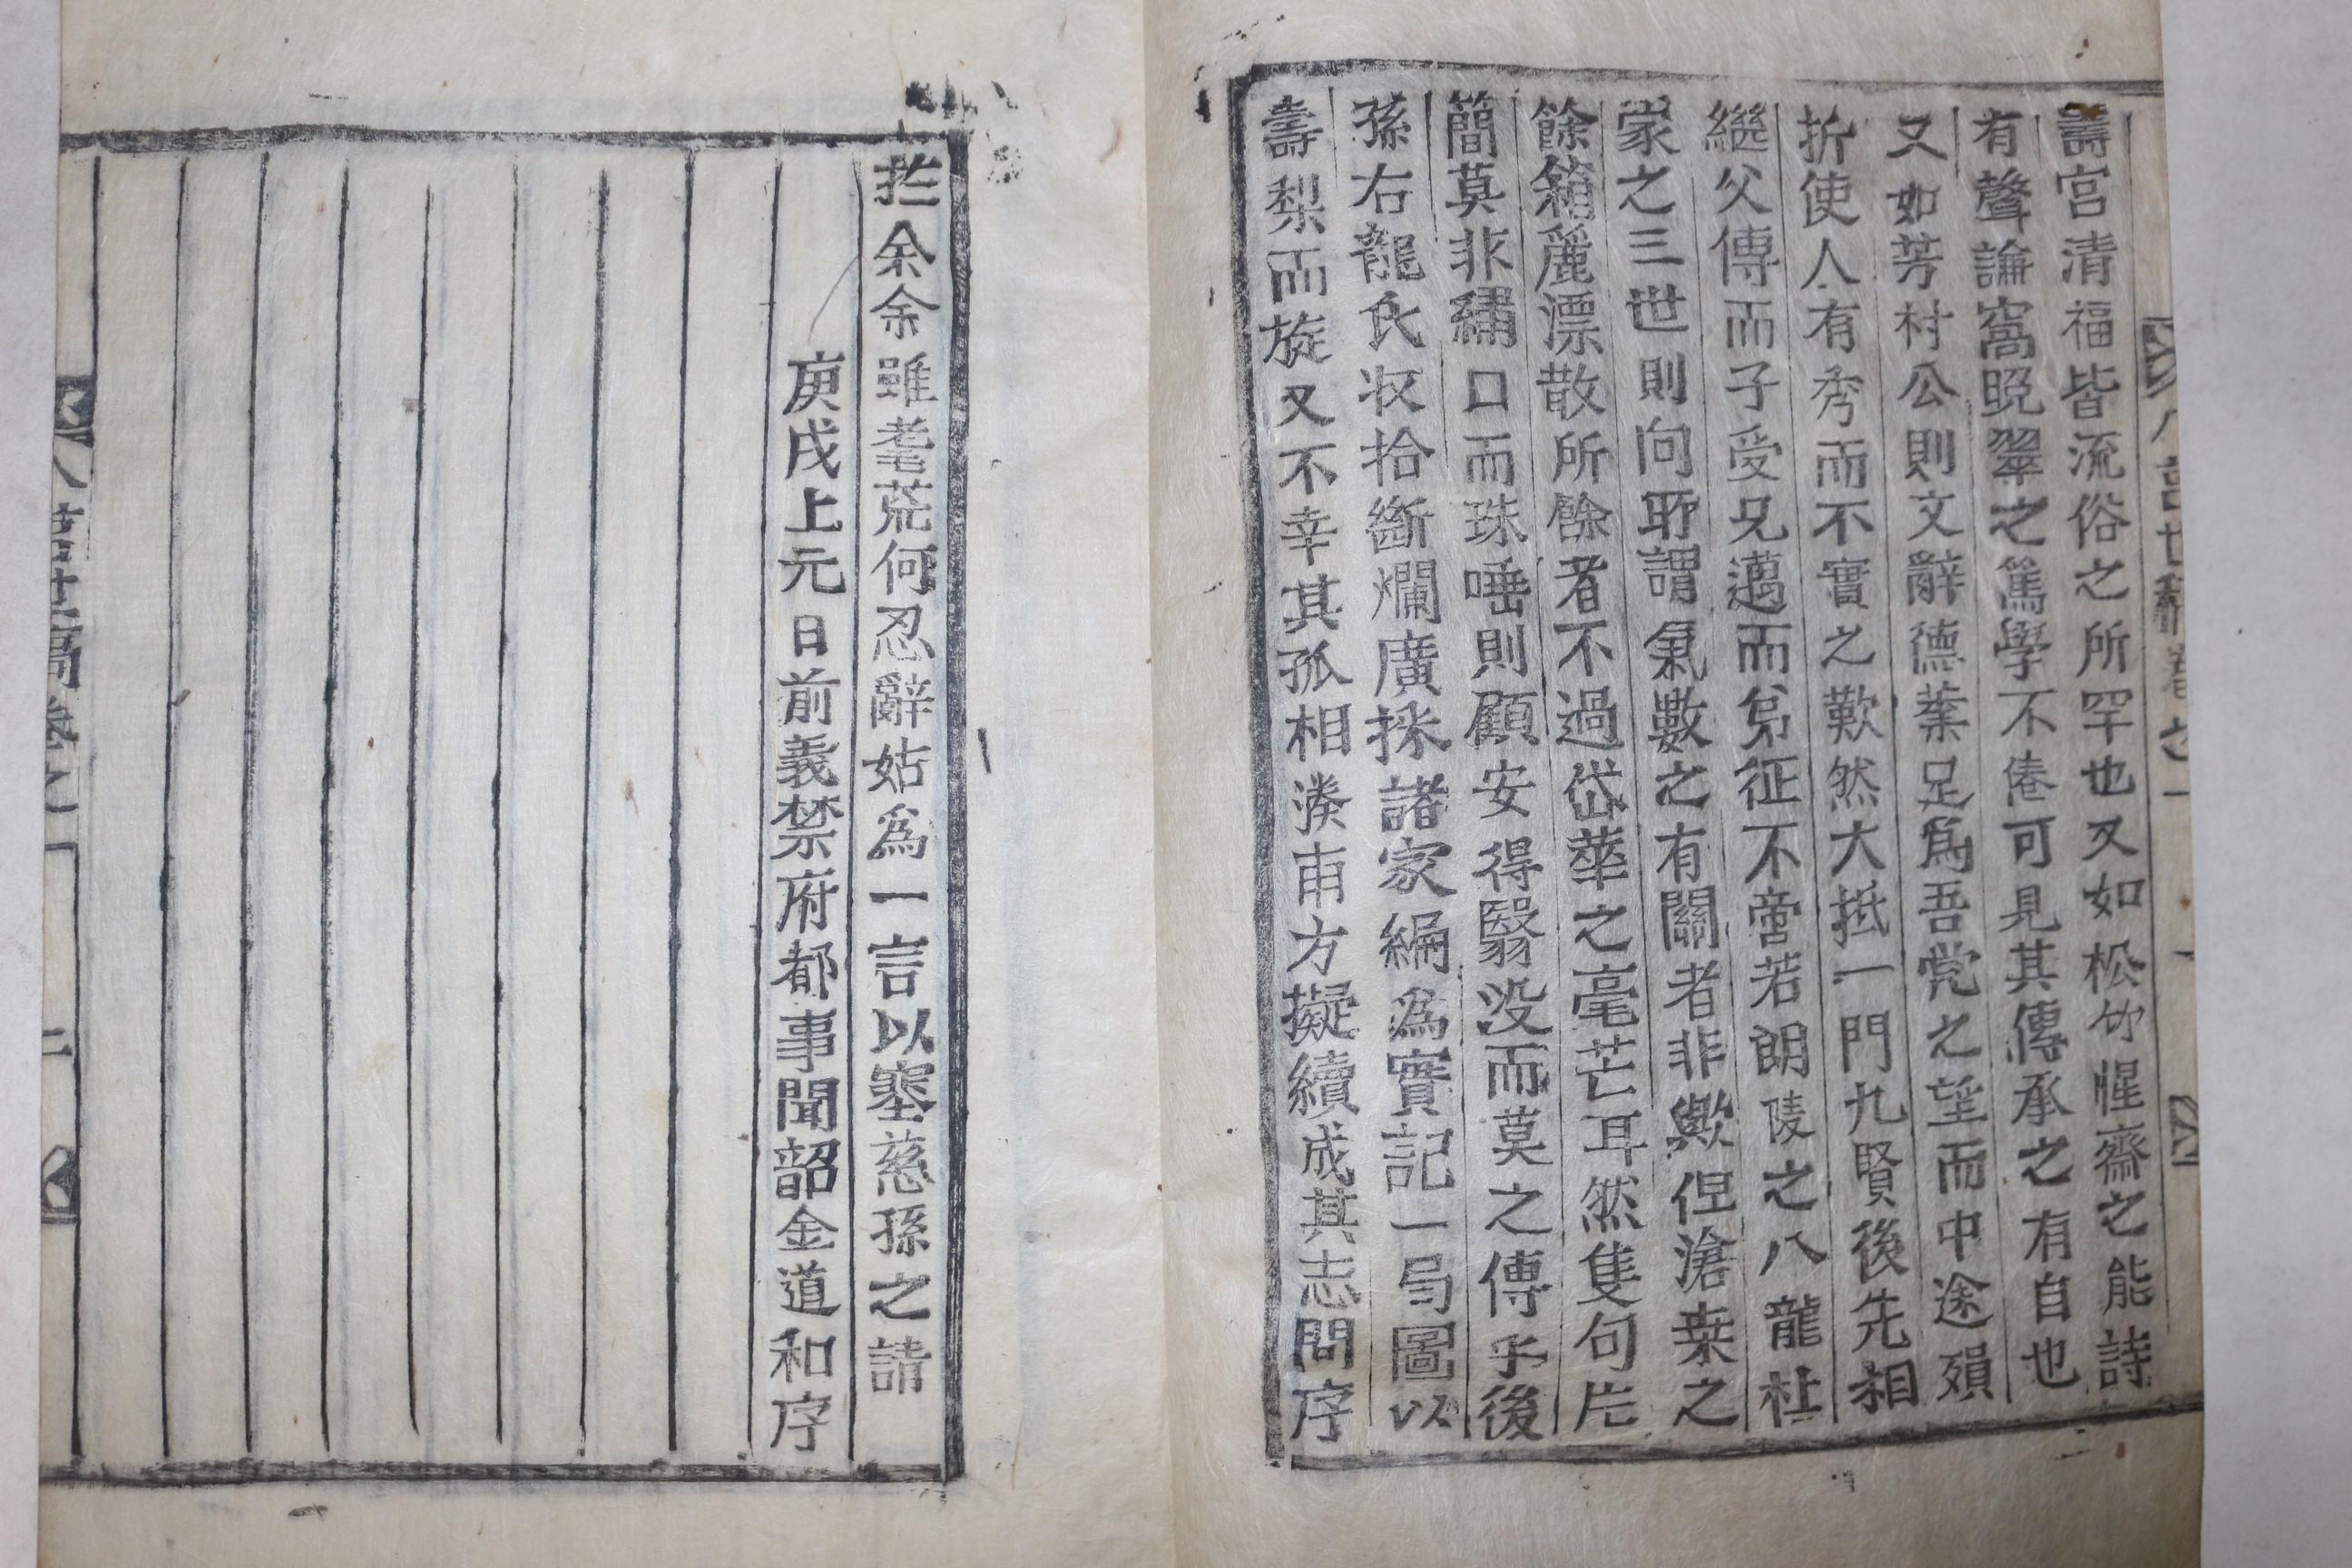 八莒世稿卷之一
壽宮清福皆流俗之所罕也又如松竹惺齋之能詩
有聲論窩晩翠之篤學不倦可見其傳承之有自也
又如芳村公則文辭德業足爲吾党之望而中途殞
折使人有秀而不實之歎然大抵一門九賢後先相
繼父傳而子受兄邁而弟征不啻若朗陵之八龍杜
家之三世則向所謂氣數之有關者非歟但滄桒之
餘箱麗漂散所餘者不過岱華之毫芒耳然隻句片
簡莫非繡口而珠唾則顧安得翳没而莫之傳乎後
孫右龍氏収拾斷爛廣採諸家編爲實記一局圖以
壽梨而旋又不幸其孤相湊甫方擬續成其志問序
扵余余雖耄荒何忍辭姑爲一言以塞慈孫之請
庚戌上元日前義禁府都事聞韶金道和序
八莒世稿卷之一
二